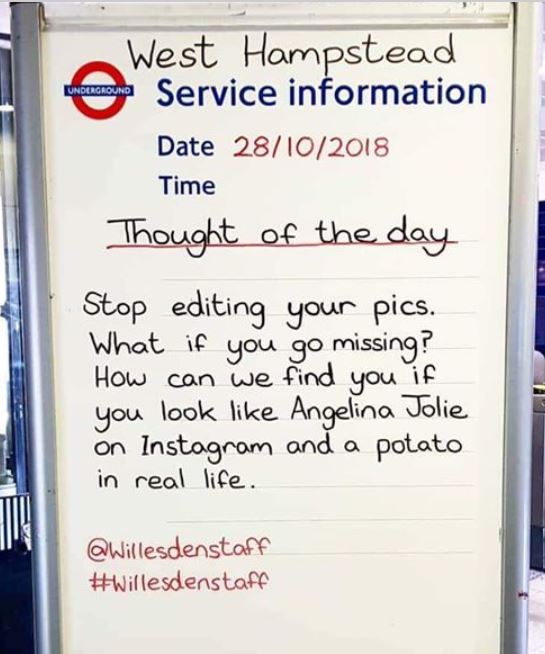 West Hampstead
UNDERGROUND
Service information
Date 28/10/2018
Time
Thought of the day
Stop editing your pics.
What if you go missing?
How can we find you if
you look like Angelina Jolie
on Instagram and a potato
in real life.
@Willesdenstaff
#Willesdenstaff